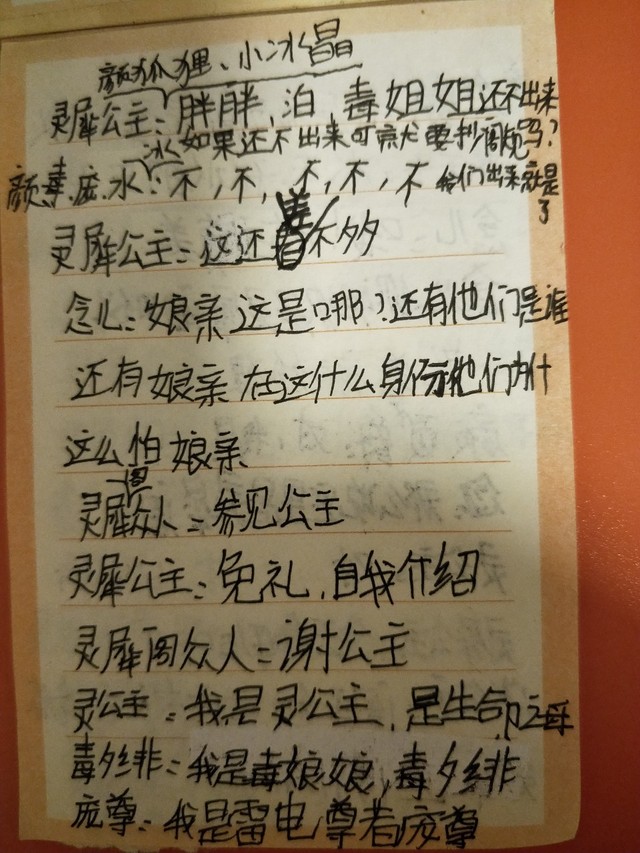 颜狐狸、小冰晶
灵犀公主:胖胖,泊,毒姐姐还不出来
冰如果还不出来可就要抄阁规吗?
颜、毒、庞、水:不,不,不,不,不我们出来就是了
灵犀公主:这还差不多
念儿:娘亲这是哪?还有他们是谁
还有娘亲在这什么身份他们为什
这么怕娘亲
灵犀阁众人:参见公主
灵犀公主:免礼,自我介绍
灵犀阁众人:谢公主
灵公主:我是灵公主,是生命之母
毒夕绯:我是毒娘娘,毒夕绯
庞尊:我是雷电尊者庞尊